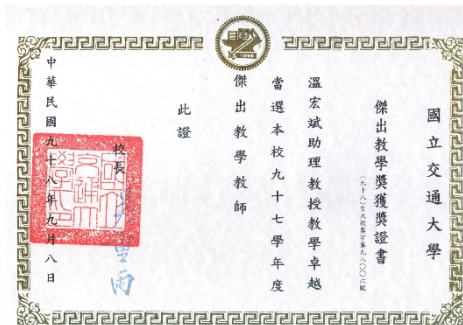 國立交通大學
傑出教學獎獲獎證書
溫宏斌助理教授教學卓越
當選本校九十七學年度
傑出教學教師
此證
校長
中華民國九十八年九月八日